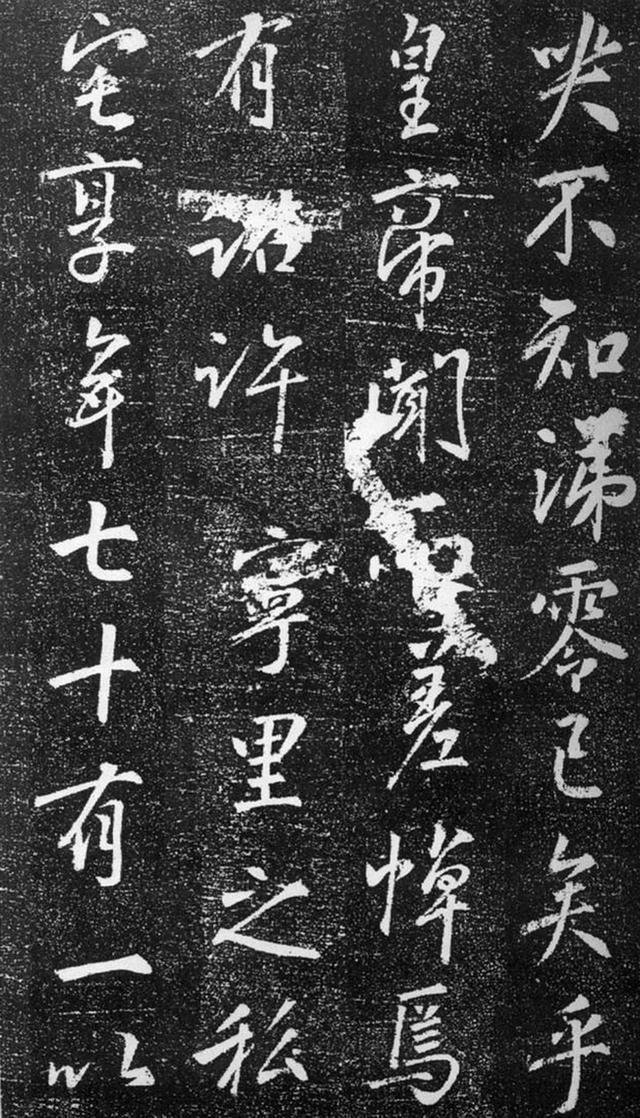 咲不知涕零已矣乎
皇帝聞差悼焉
有詔許寧里之私
宅享年七十有一以